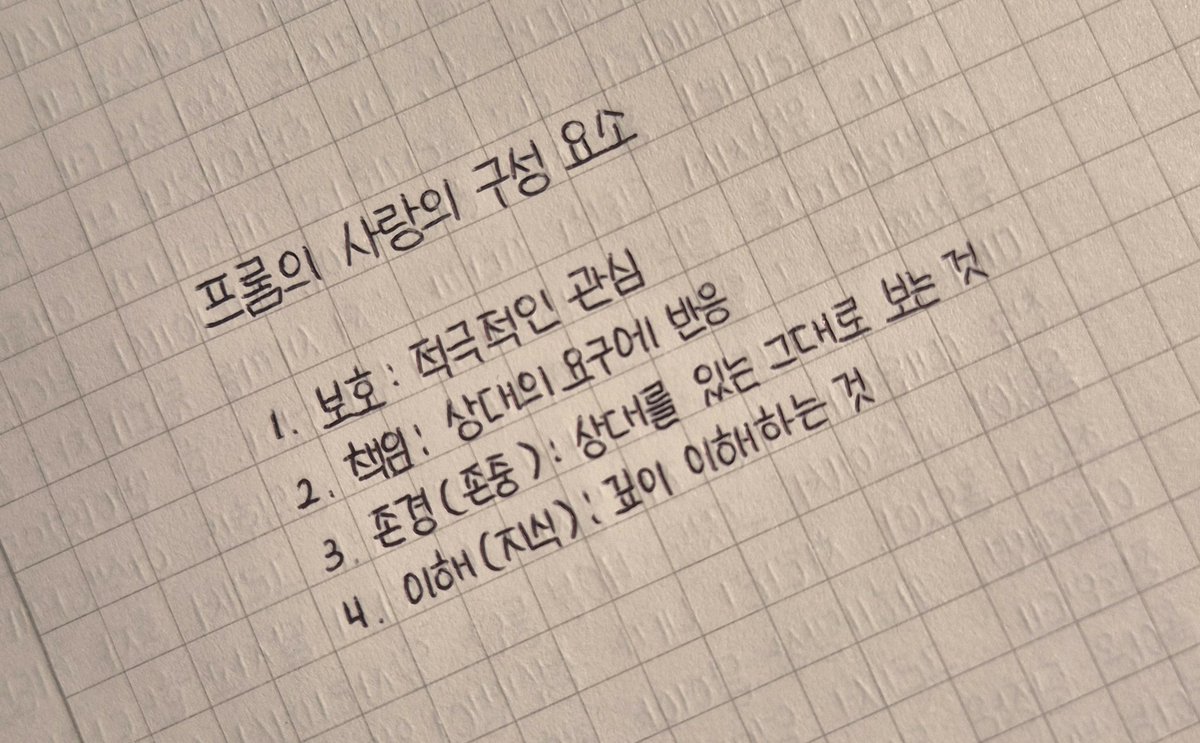 프롬의 사랑의 구성 요소
1. 보호: 적극적인 관심
2. 책임: 상대의 요구에 반응
3. 존경(존중): 상대를 있는 그대로 보는 것
4. 이해(지식): 깊이 이해하는 것